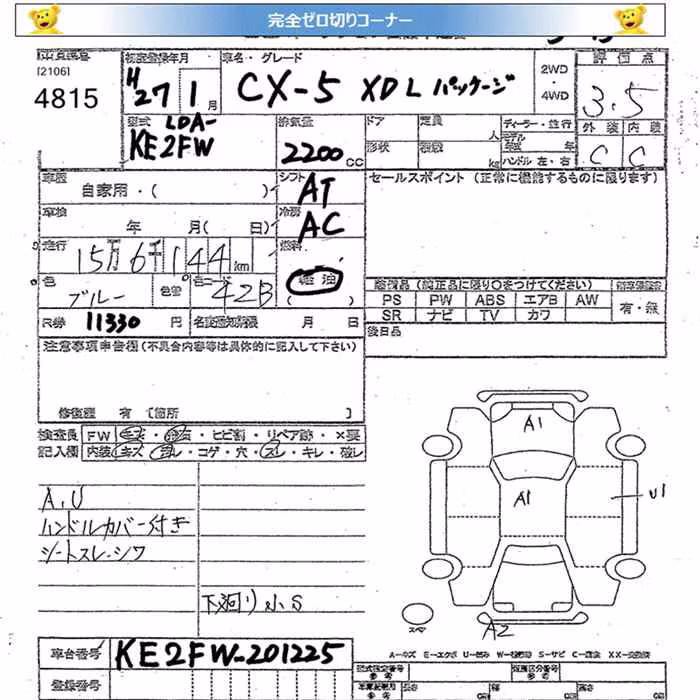 完全ゼロ切りコーナー
[2106]
4815
初度登録年月
H27年1月
車名・グレード
CX-5 XDL パッケージ
2WD
・
4WD
評価点
3.5
外装 内装
C C
型式 LDA-
KE2FW
排気量
2200 CC
ドア 定員 人
形状 積載 kg
ディーラー・並行
モデル
年式 年
ハンドル 左・右
車歴
自家用・( )
シフト
AT
セールスポイント (正常に機能するものに限ります)
車検
年 月( 日)
冷房
AC
走行
15万6千144km
燃料
軽油
( )
色
ブルー
色替
色コード 42B
装備品 (純正品に限り○をつけてください)
PS PW ABS エアB AW
SR ナビ TV カワ
有・無
R券 11330 円
名変通知期限 月 日
後日品
注意事項申告欄 (不具合内容等は具体的に記入して下さい)
修復歴 有 [箇所 ]
検査員 FW キズ・飛石・ヒビ割・リペア跡・×要
記入欄 内装 キズ・汚レ・コゲ・穴・スレ・キレ・破レ
A,U
ハンドルカバー付き
シートスレ・シワ
下廻り小S
A1
A1
U1
A2
スペア
A-キズ E-エクボ U-凹み W-補修跡 S-サビ C-腐食 XX-交換済
車台番号 KE2FW-201225
登録番号
型式指定番号
類別区分番号
参考
長さ cm 幅 cm 高さ cm